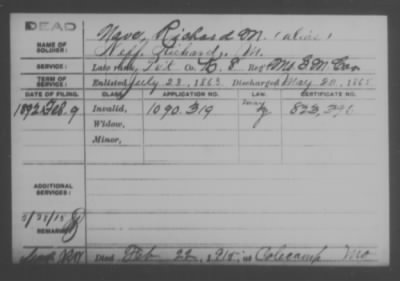 DEAD
NAME OF SOLDIER: Nave, Richard M. (alias)
Neff, Richard, M.
SERVICE: Late rank, Pvt Co. E. 8 Reg't Mo S M Cav
TERM OF SERVICE: Enlisted July 23, 1863 Discharged May 20, 1865
DATE OF FILING. CLASS. APPLICATION NO. LAW. CERTIFICATE NO.
1892 Feb. 9 Invalid, 1090.319
Widow,
Minor,
ADDITIONAL SERVICES:
REMARKS:
Died Feb 22, 1915, at Colecamp Mo